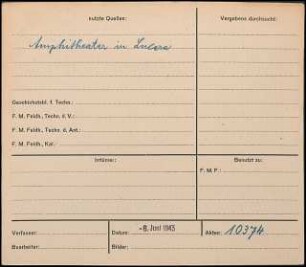 nutzte Quellen:
Vergebens durchsucht:
Amphitheater in Lucera
Geschichtsbl. f. Techn.:
F. M. Feldh., Techn. d. V.:
F. M. Feldh., Techn. d. Ant.:
F. M. Feldh., Kal.:
Irrtümer:
Benutzt zu:
F. M. F.:
Verfasser:
Datum: -8. Juni 1943
Akten: 10374
Bearbeiter:
Bilder: